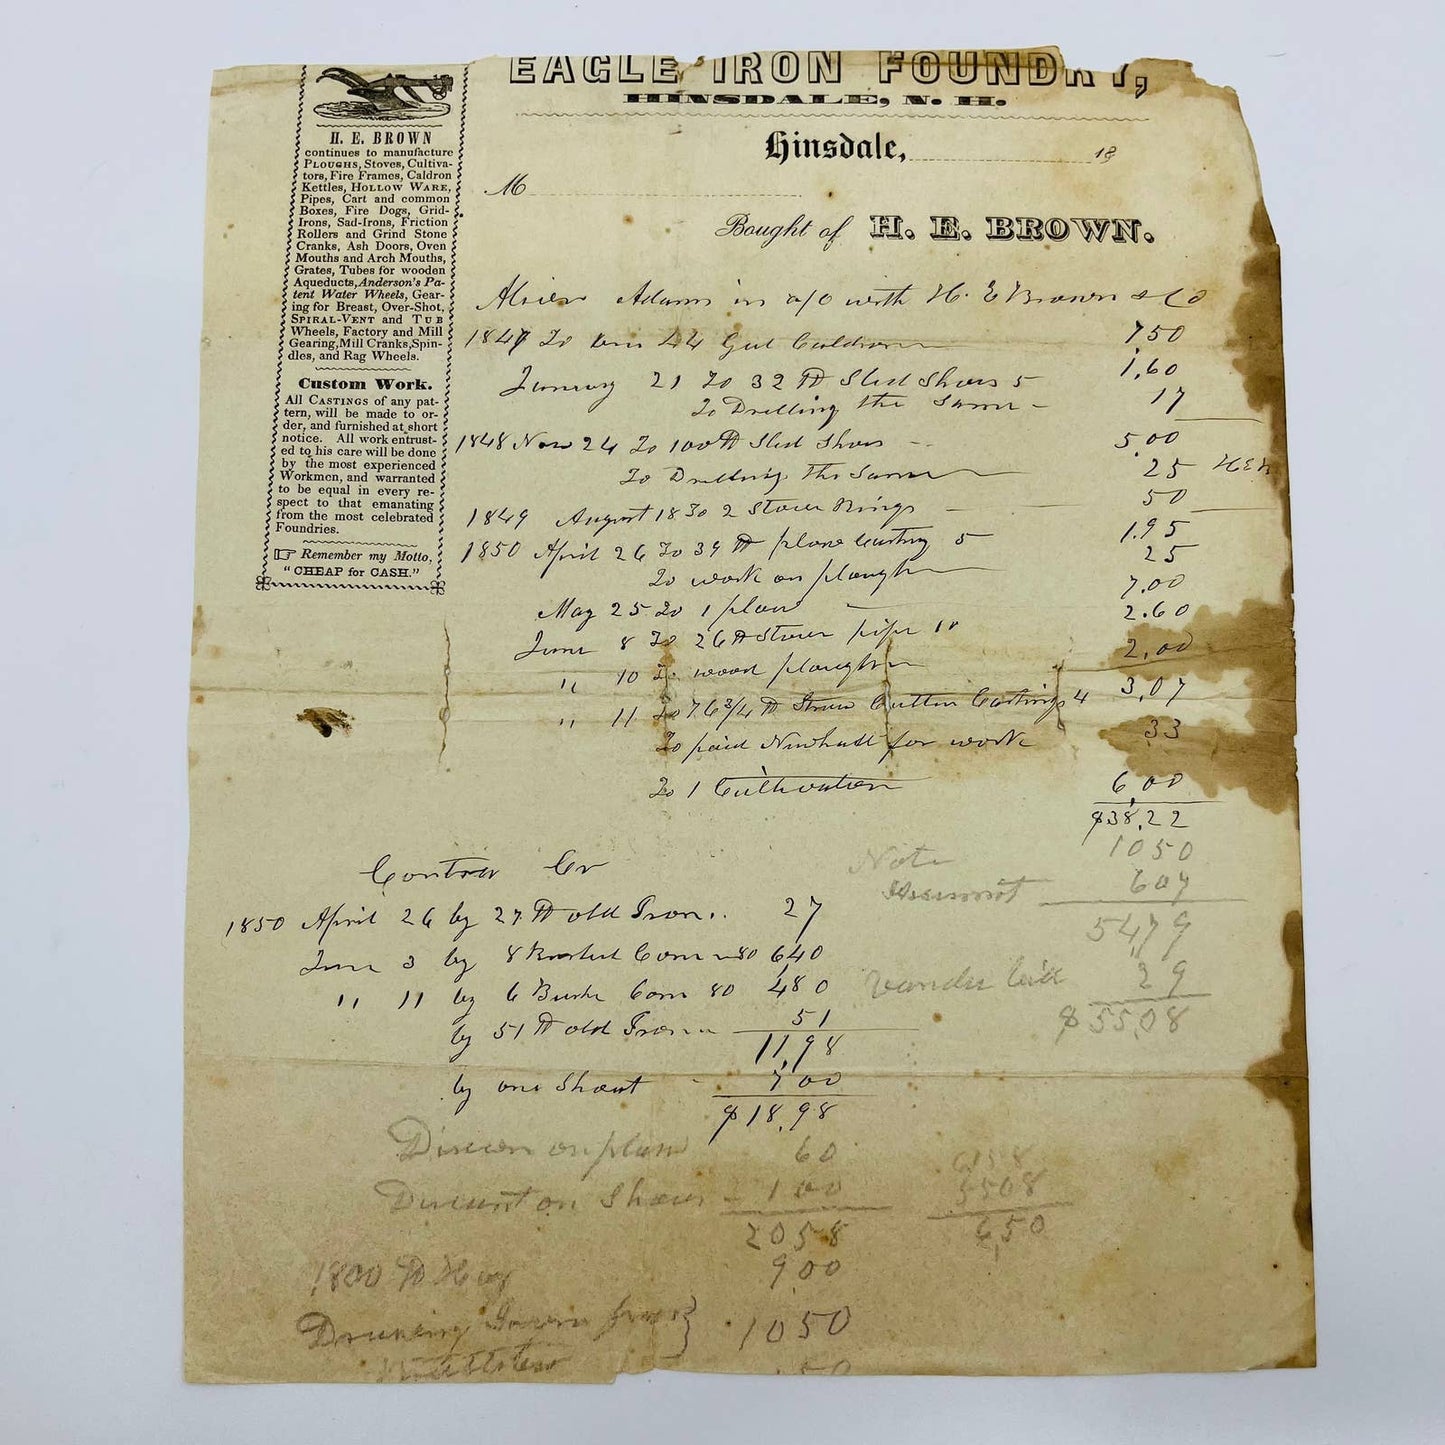 EAGLE IRON FOUNDRY,
HINSDALE, N. H.
Hinsdale, 18
M
Bought of H. E. BROWN.
H. E. BROWN
continues to manufacture
PLOUGHS, Stoves, Cultiva-
tors, Fire Frames, Caldron
Kettles, HOLLOW WARE,
Pipes, Cart and common
Boxes, Fire Dogs, Grid-
Irons, Sad-Irons, Friction
Rollers and Grind Stone
Cranks, Ash Doors, Oven
Mouths and Arch Mouths,
Grates, Tubes for wooden
Aqueducts, Anderson's Pa-
tent Water Wheels, Gear-
ing for Breast, Over-Shot,
SPIRAL-VENT and TUB
Wheels, Factory and Mill
Gearing, Mill Cranks, Spin-
dles, and Rag Wheels.
Custom Work.
All CASTINGS of any pat-
tern, will be made to or-
der, and furnished at short
notice. All work entrust-
ed to his care will be done
by the most experienced
Workmen, and warranted
to be equal in every re-
spect to that emanating
from the most celebrated
Foundries.
☞ Remember my Motto,
"CHEAP for CASH."
Adams in a/c with H. E Brown & Co
1847 To 44 Gal Caldron 7 50
January 21 To 32 ℔ Sled Shoes 5 1,60
To Drilling the Same 17
1848 Nov 24 To 100 ℔ Sled Shoes 5,00
To Drilling the Same 25 HEB
1849 August 18 To 2 Stove Rings 50
1850 April 26 To 39 ℔ plow Casting 5 1.95
To work on plough 25
May 25 To 1 plow 7.00
June 8 To 26 ℔ Stove pipe 10 2.60
" 10 To wood plough 2,00
" 11 To 76 3/4 ℔ Straw Cutter Castings 4 3,07
To paid Newhall for work 33
To 1 Cultivator 6,00
$38,22
Note 1050
607
5479
29
$5508
Contra Cr
1850 April 26 by 27 ℔ old Iron 27
June 3 by 8 Bushel Corn 80 6,40
" 11 by 6 Bush Corn 80 480
by 51 ℔ old Iron 51
11,98
by one Shoat 7 00
$18,98
on plow 60
on Shoat 1 00
2058
1800 ℔ Hay 9 00
1050
6158
5508
6,50